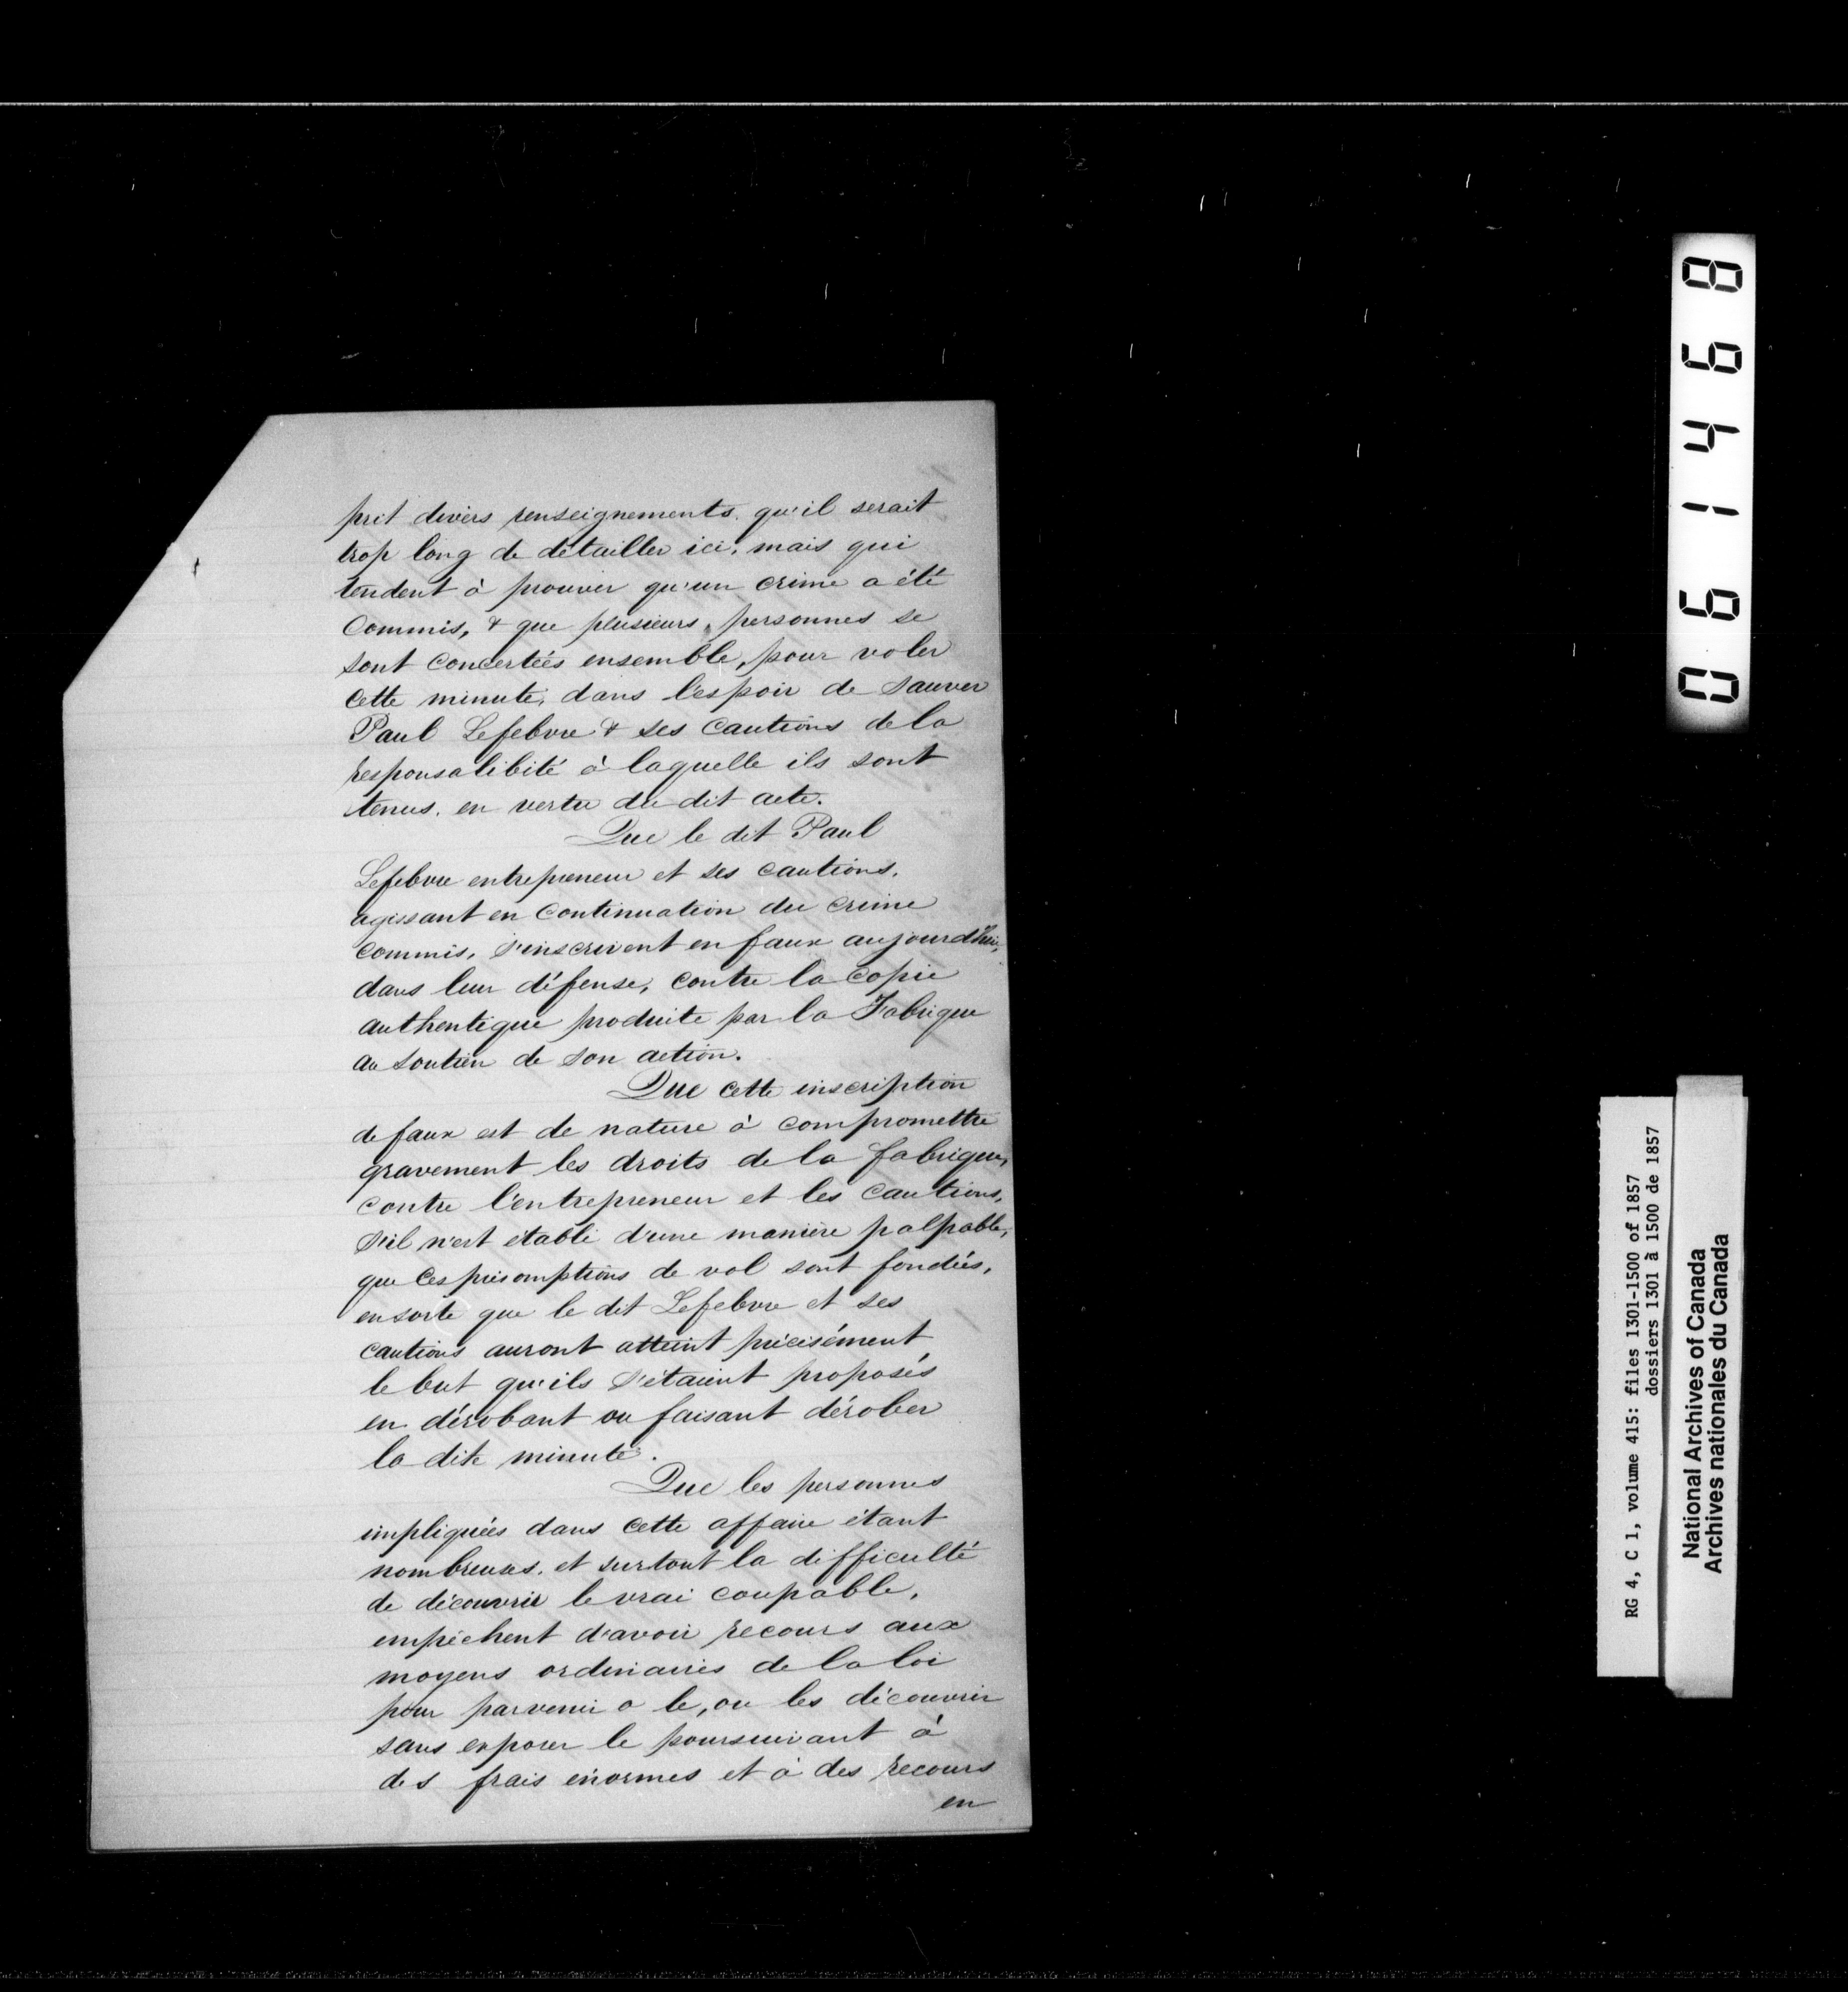 prit divers renseignements, qu'il serait
trop long de détailler ici, mais qui
tendent à prouver qu'un crime a été
Commis, & que plusieurs personnes se
sont concertées ensemble, pour voler
cette minute, dans l'espoir de sauver
Paul Lefebvre & ses cautions de la
responsalibité à laquelle ils sont
tenus, en vertu du dit acte.
Que le dit Paul
Lefebvre entrepreneur et ses cautions,
agissant en continuation du crime
commis, s'inscrivent en faux aujourd'hui,
dans leur défense, contre la copie
authentique produite par la Fabrique
au soutien de son action.
Que cette inscription
de faux est de nature à compromettre
gravement les droits de la fabrique,
contre l'entrepreneur et les cautions,
s'il n'est établi d'une manière palpable,
que ces présomptions de vol sont fondées,
ensorte que le dit Lefebvre et ses
cautions auront atteint précisément
le but qu'ils s'étaient proposés
en dérobant ou faisant dérober
la dite minute.
Que les personnes
impliquées dans cette affaire étant
nombreuses, et surtout la difficulté
de découvrir le vrai coupable,
empêchent d'avoir recours aux
moyens ordinaires de la loi
pour parvenir a le, ou les découvrir
sans exposer le poursuivant à
des frais énormes et à des recours
en
061468
RG 4, C 1, volume 415: files 1301-1500 of 1857
dossiers 1301 à 1500 de 1857
National Archives of Canada
Archives nationales du Canada